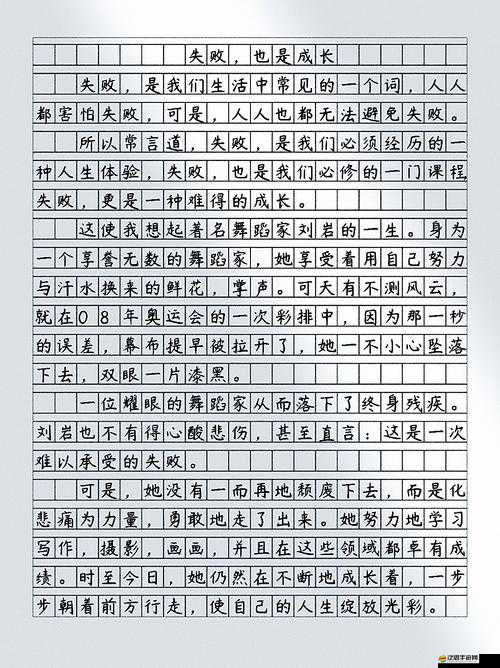 失败，也是成长
失败，是我们生活中常见的一个词，人人
都害怕失败，可是，人人也都无法避免失败。
所以常言道，失败，是我们必须经历的一
种人生体验，失败，也是我们必修的一门课程，
失败，更是一种难得的成长。
这使我想起著名舞蹈家刘岩的一生。身为
一个享誉无数的舞蹈家，她享受着用自己努力
与汗水换来的鲜花，掌声。可天有不测风云，
就在08年奥运会的一次彩排中，因为那一秒
的误差，幕布提早被拉开了，她一不小心坠落
下去，双眼一片漆黑。
一位耀眼的舞蹈家从而落下了终身残疾。
刘岩也不有得心酸悲伤，甚至直言：这是一次
难以承受的失败。
可是，她没有一而再地颓废下去，而是化
悲痛为力量，勇敢地走了出来。她努力地学习
写作，摄影，画画，并且在这些领域都卓有成
绩。时至今日，她仍然在不断地成长着，一步
步朝着前方行走，使自己的人生绽放光彩。
泛思手游网